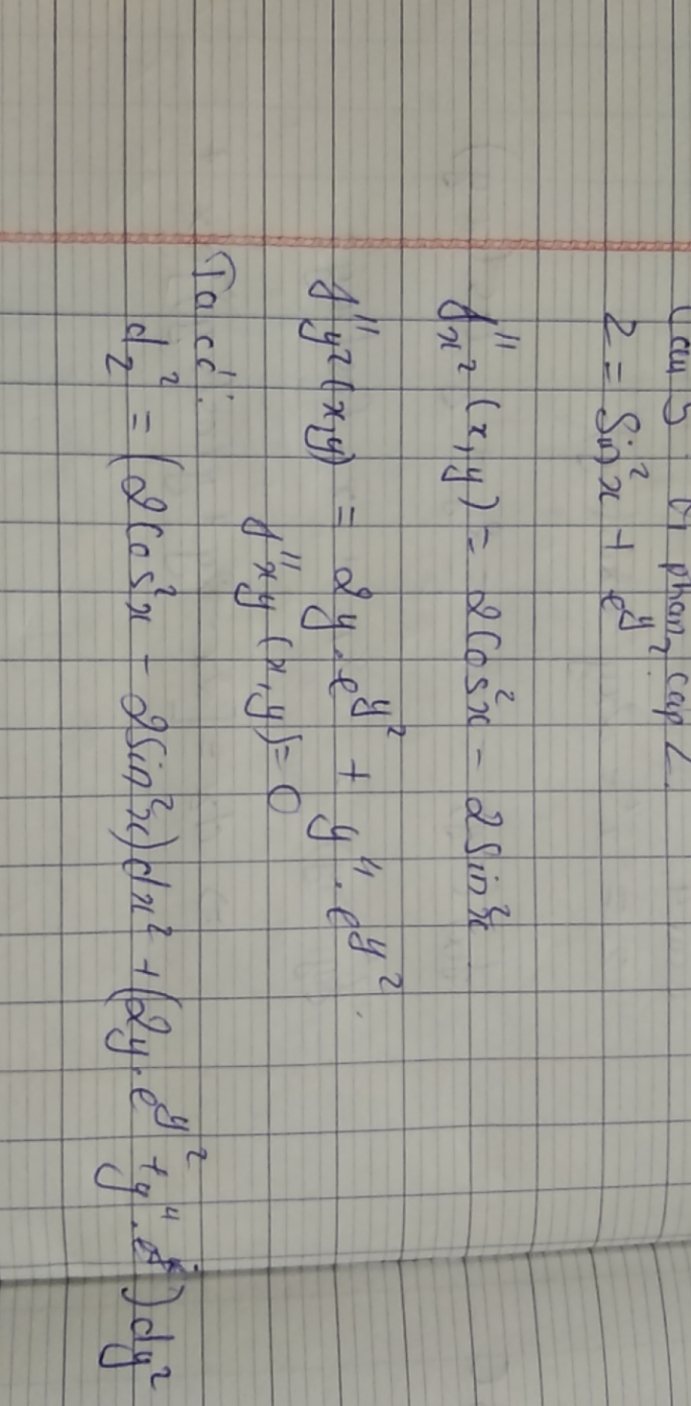 Câu 5 Vi phân cấp 2
z = sin²x + e^y²
f''x² (x,y) = 2cos²x - 2sin²x
f''y² (x,y) = 2y.e^y² + y⁴.e^y²
f''xy (x,y) = 0
Ta có:
d²z = (2cos²x - 2sin²x)dx² + (2y.e^y² + y⁴.e^y²)dy²